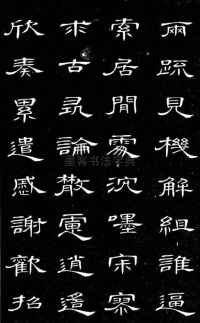 兩疏見機解組誰逼
索居閒處沈嘿寂寥
求古尋論散慮逍遙
欣奏累遣慼謝歡招